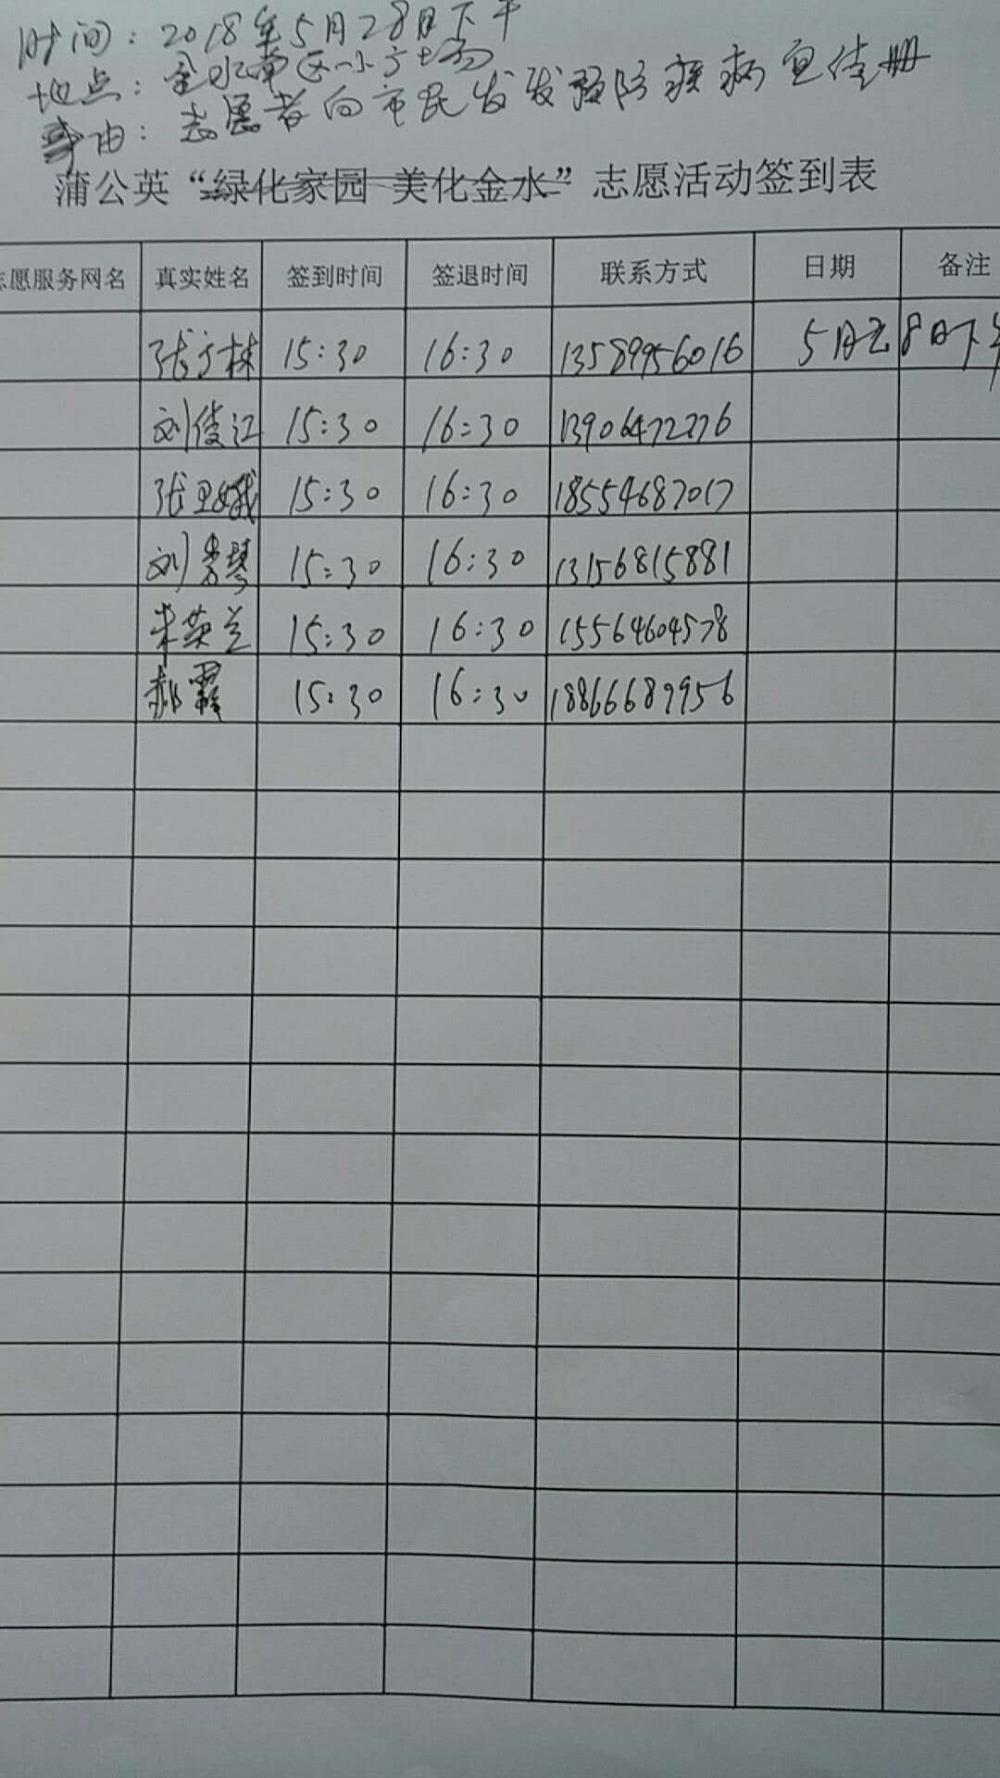 时间：2018年5月28日下午
地点：金水南区小广场
事由：志愿者向市民发发预防疾病宣传册
蒲公英“绿化家园 美化金水”志愿活动签到表
志愿服务网名 真实姓名 签到时间 签退时间 联系方式 日期 备注
张方林 15:30 16:30 13589956016 5月28日下午
刘俊江 15:30 16:30 13906472276
张卫娥 15:30 16:30 18554687017
刘秀琴 15:30 16:30 13156815881
朱英兰 15:30 16:30 15564604578
郝霞 15:30 16:30 18866689956